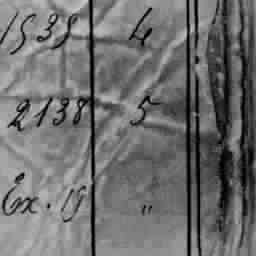 1539 4
2138 5
Ex. 19 "